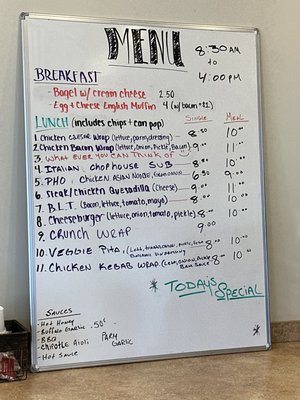 MENU
8:30 AM
to
4:00 PM
BREAKFAST
- Bagel w/ cream cheese 2.50
- Egg + Cheese English Muffin 4 (w/ bacon +$2)
LUNCH (includes chips + can pop) SINGLE MEAL
1. Chicken CAESAR Wrap (lettuce, parm, dressing) 8.50 10.00
2. Chicken Bacon Wrap (lettuce, Onion, Pickle, Bacon) 9.00 11.00
3. WHAT EVER YOU CAN THINK OF
4. ITALIAN, CHOP HOUSE SUB 8.00 10.00
5. PHO, CHICKEN ASIAN NOODLE, 6.50 9.00
6. Steak/Chicken Quesadilla (Cheese) 9.00 11.00
7. B.L.T. (Bacon, lettuce, tomato, mayo) 8.00 10.00
8. Cheeseburger (lettuce, onion, tomato, pickle) 8.00 10.00
9. CRUNCH WRAP 9.00
10. VEGGIE PITA, 8.00 10.00
11. CHICKEN KEBAB WRAP 8.00 10.00
* TODAY'S SPECIAL
*
SAUCES
- Hot Honey
- Buffalo Garlic .50¢
- BBQ PARM
- CHIPOTLE Aioli GARLIC
- Hot Sauce